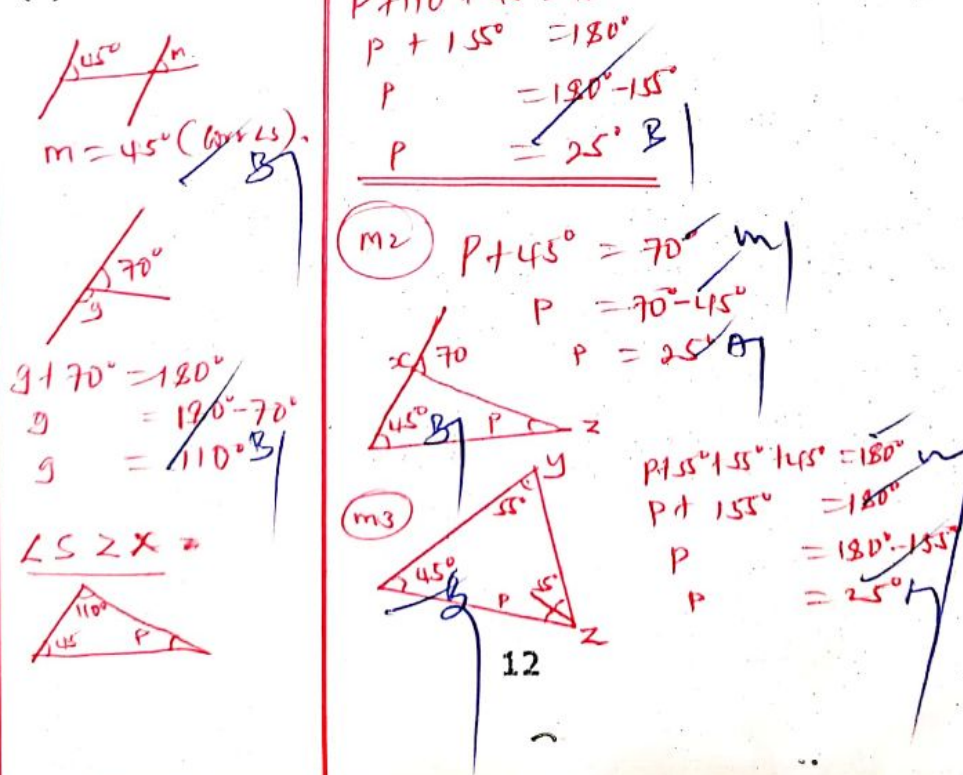 45°
m
m = 45° (corr ∠s).
B1
70°
g
g + 70° = 180°
g = 180° - 70°
g = 110° B1
∠S Z X =
110°
45
P
P + 155° = 180°
P = 180° - 155°
P = 25° B1
M2
P + 45° = 70° m1
P = 70° - 45°
P = 25° A1
x
70
45° B1
P
z
M3
y
55°
45°
B
P
55°
z
P + 55° + 55° + 45° = 180°
P + 155° = 180°
P = 180° - 155°
P = 25° A1
12